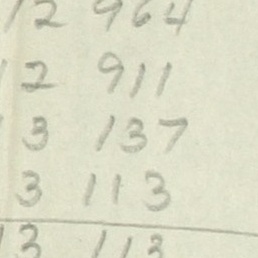 12 964
12 911
13 137
13 113
13 113